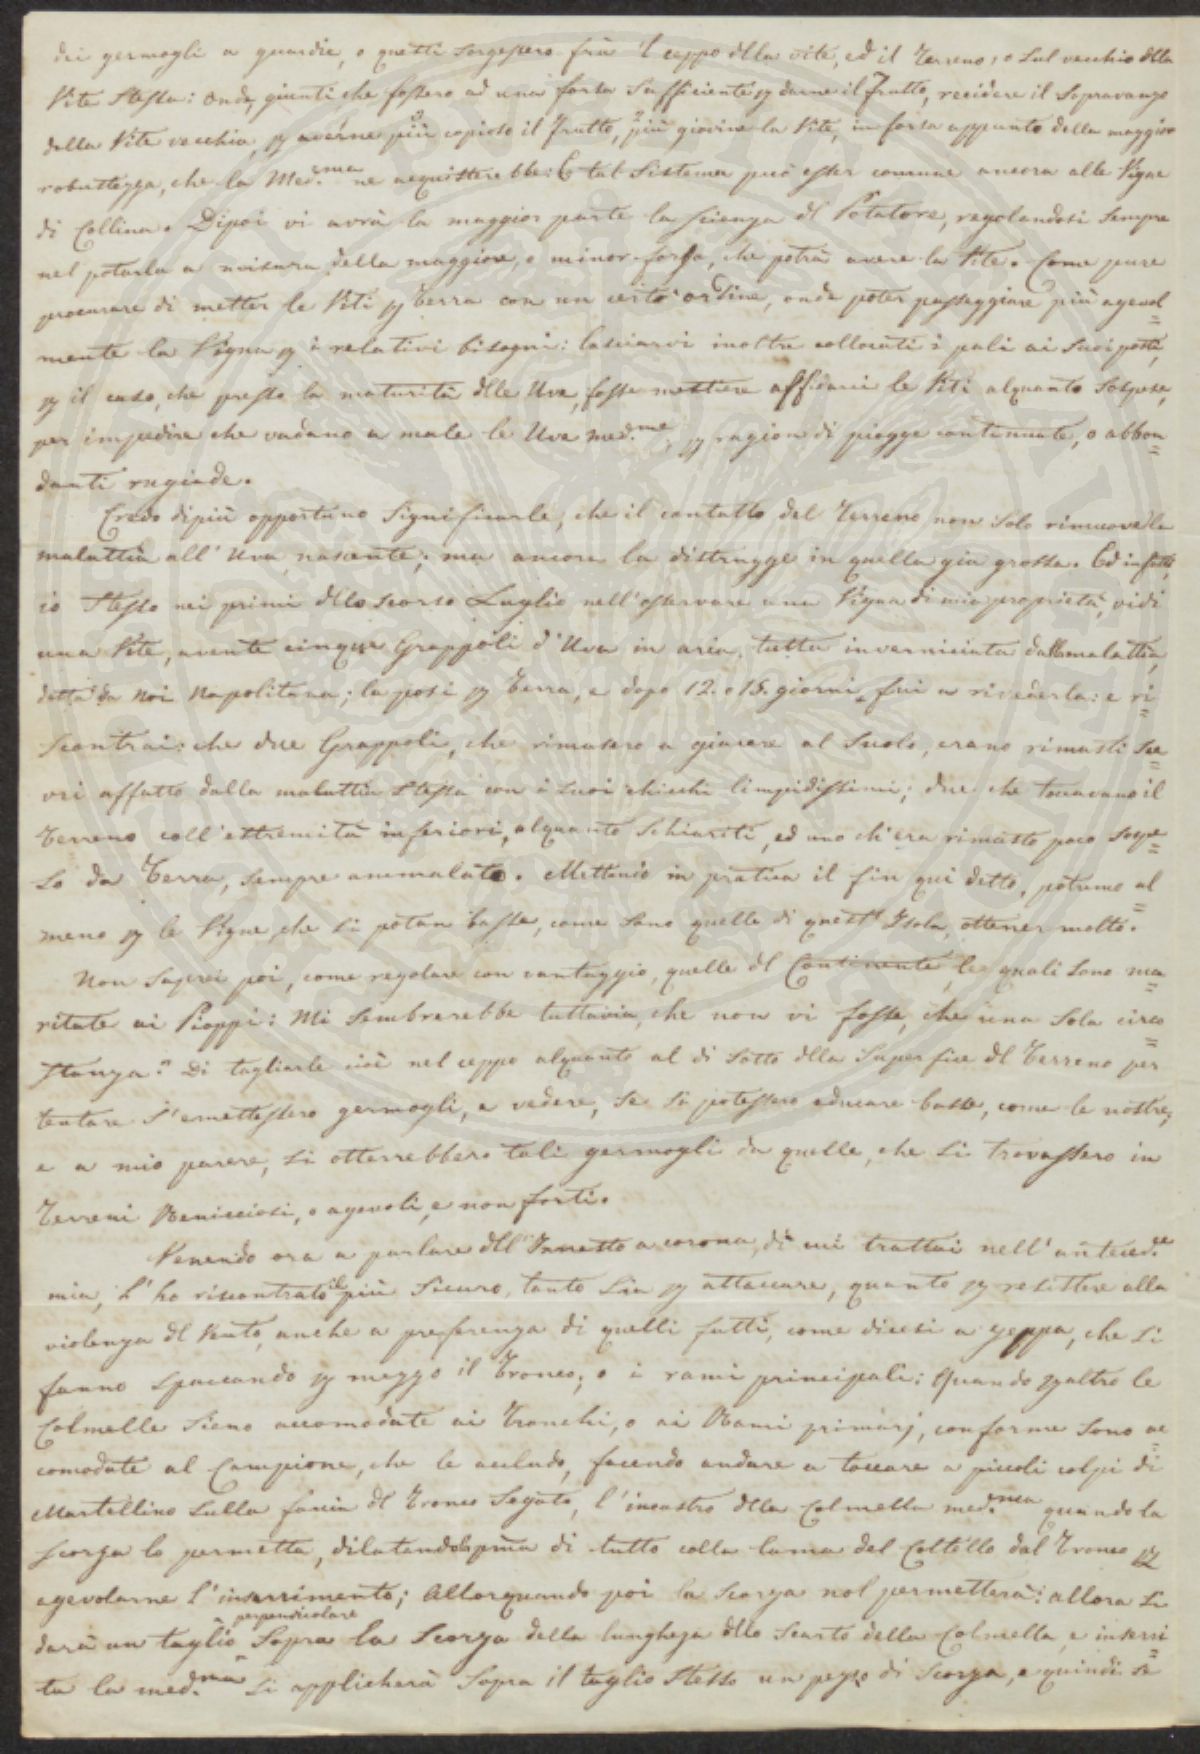 dei germogli a guardie, o questi sorgessero frà 'l ceppo dlla vite, ed il Terreno, o sul vecchio dlla
Vite stessa: onde, giunti che fossero ad una forza sufficiente p darne il Frutto, recidere il sopravanzo
della Vite vecchia, p averne più copioso il Frutto, più giovine la Vite, in forza appunto della maggior
robustezza, che la Med.ma ne acquisterebbe: E tal Sistema può esser comune ancora alle Vigne
di Collina. Dipoi vi avrà la maggior parte la scienza dl Potatore, regolandosi sempre
nel potarla a misura della maggiore, o minor forza, che potrà avere la Vite. Come pure
procurare di metter le Viti p Terra con un certo ordine, onde poter passeggiare più agevol=
mente la Vigna p i relativi bisogni: lasciarvi inoltre collocati i pali ai suoi posti,
p il caso, che presso la maturità dlle Uve, fosse mestiere affidarci le Viti alquanto sospese,
per impedire che vadano a male le Uve med.me, p ragion di piogge continuate, o abbon=
danti rugiade.
Credo dipiù opportuno significarle, che il contatto del Terreno non solo rimuove la
malattia all'Uva nascente; ma ancora la distrugge in quella già grossa. Ed infatti,
io stesso nei primi dllo scorso Luglio nell'osservare una Vigna di mia proprietà, vidi
una Vite, avente cinque Grappoli d'Uva in aria, tutta inverniciata dalla malattia,
detta da noi Napolitana; la posi p Terra, e dopo 12. o 15. giorni fui a rivederla: e ri=
scontrai: che due Grappoli, che rimasero a giacere al suolo, erano rimasti sce=
vri affatto dalla malattia stessa con i suoi chicchi limpidissimi; due che toccavano il
Terreno coll'estremità inferiori, alquanto schiariti, ed uno ch'era rimasto poco sospe=
so da Terra, sempre ammalato. Mettendo in pratica il fin qui detto, potremo al=
meno p le Vigne, che si potan basse, come sono quelle di quest'Isola, ottener molto.
Non saprei poi, come regolare con vantaggio, quelle dl Continente, le quali sono ma=
ritate ai Pioppi: Mi sembrerebbe tuttavia, che non vi fosse, che una sola circo=
stanza: Di tagliarle cioè nel ceppo alquanto al di sotto dlla superfice dl Terreno per
tentare s'emettessero germogli, e vedere, se si potessero educare basse, come le nostre;
e a mio parere, si otterrebbero tali germogli da quelle, che si trovassero in
Terreni Renicciosi, o agevoli, e non forti.
Venendo ora a parlare dll'Innesto a corona, di cui trattai nell'anteced.te
mia, l'ho riscontrato il più sicuro, tanto sia p attaccare, quanto p resistere alla
violenza dl Vento, anche a preferenza di quelli fatti, come dicesi a zeppa, che si
fanno spaccando p mezzo il Tronco, o i rami principali: Quando paltro le
Colmelle sieno accomodate ai Tronchi, o ai Rami primarj, conforme sono ac=
comodate al Campione, che le accludo, facendo andare a toccare a piccoli colpi di
Martellino sulla faccia dl Tronco segato, l'incastro dlla Colmella med.ma quando la
scorza lo permetta, dilatandola pma di tutto colla lama del Coltello dal Tronco p
agevolarne l'inserimento; Allorquando poi la scorza nol permetterà: allora si
darà un taglio perpendicolare sopra la scorza della lunghezza dllo scarto della Colmella, e inseri=
ta la med.ma si applicherà sopra il taglio stesso un pezzo di scorza, e quindi si